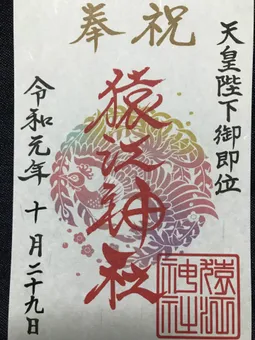 奉祝
天皇陛下御即位
猿江神社
令和元年 十月二十九日
猿江
神社